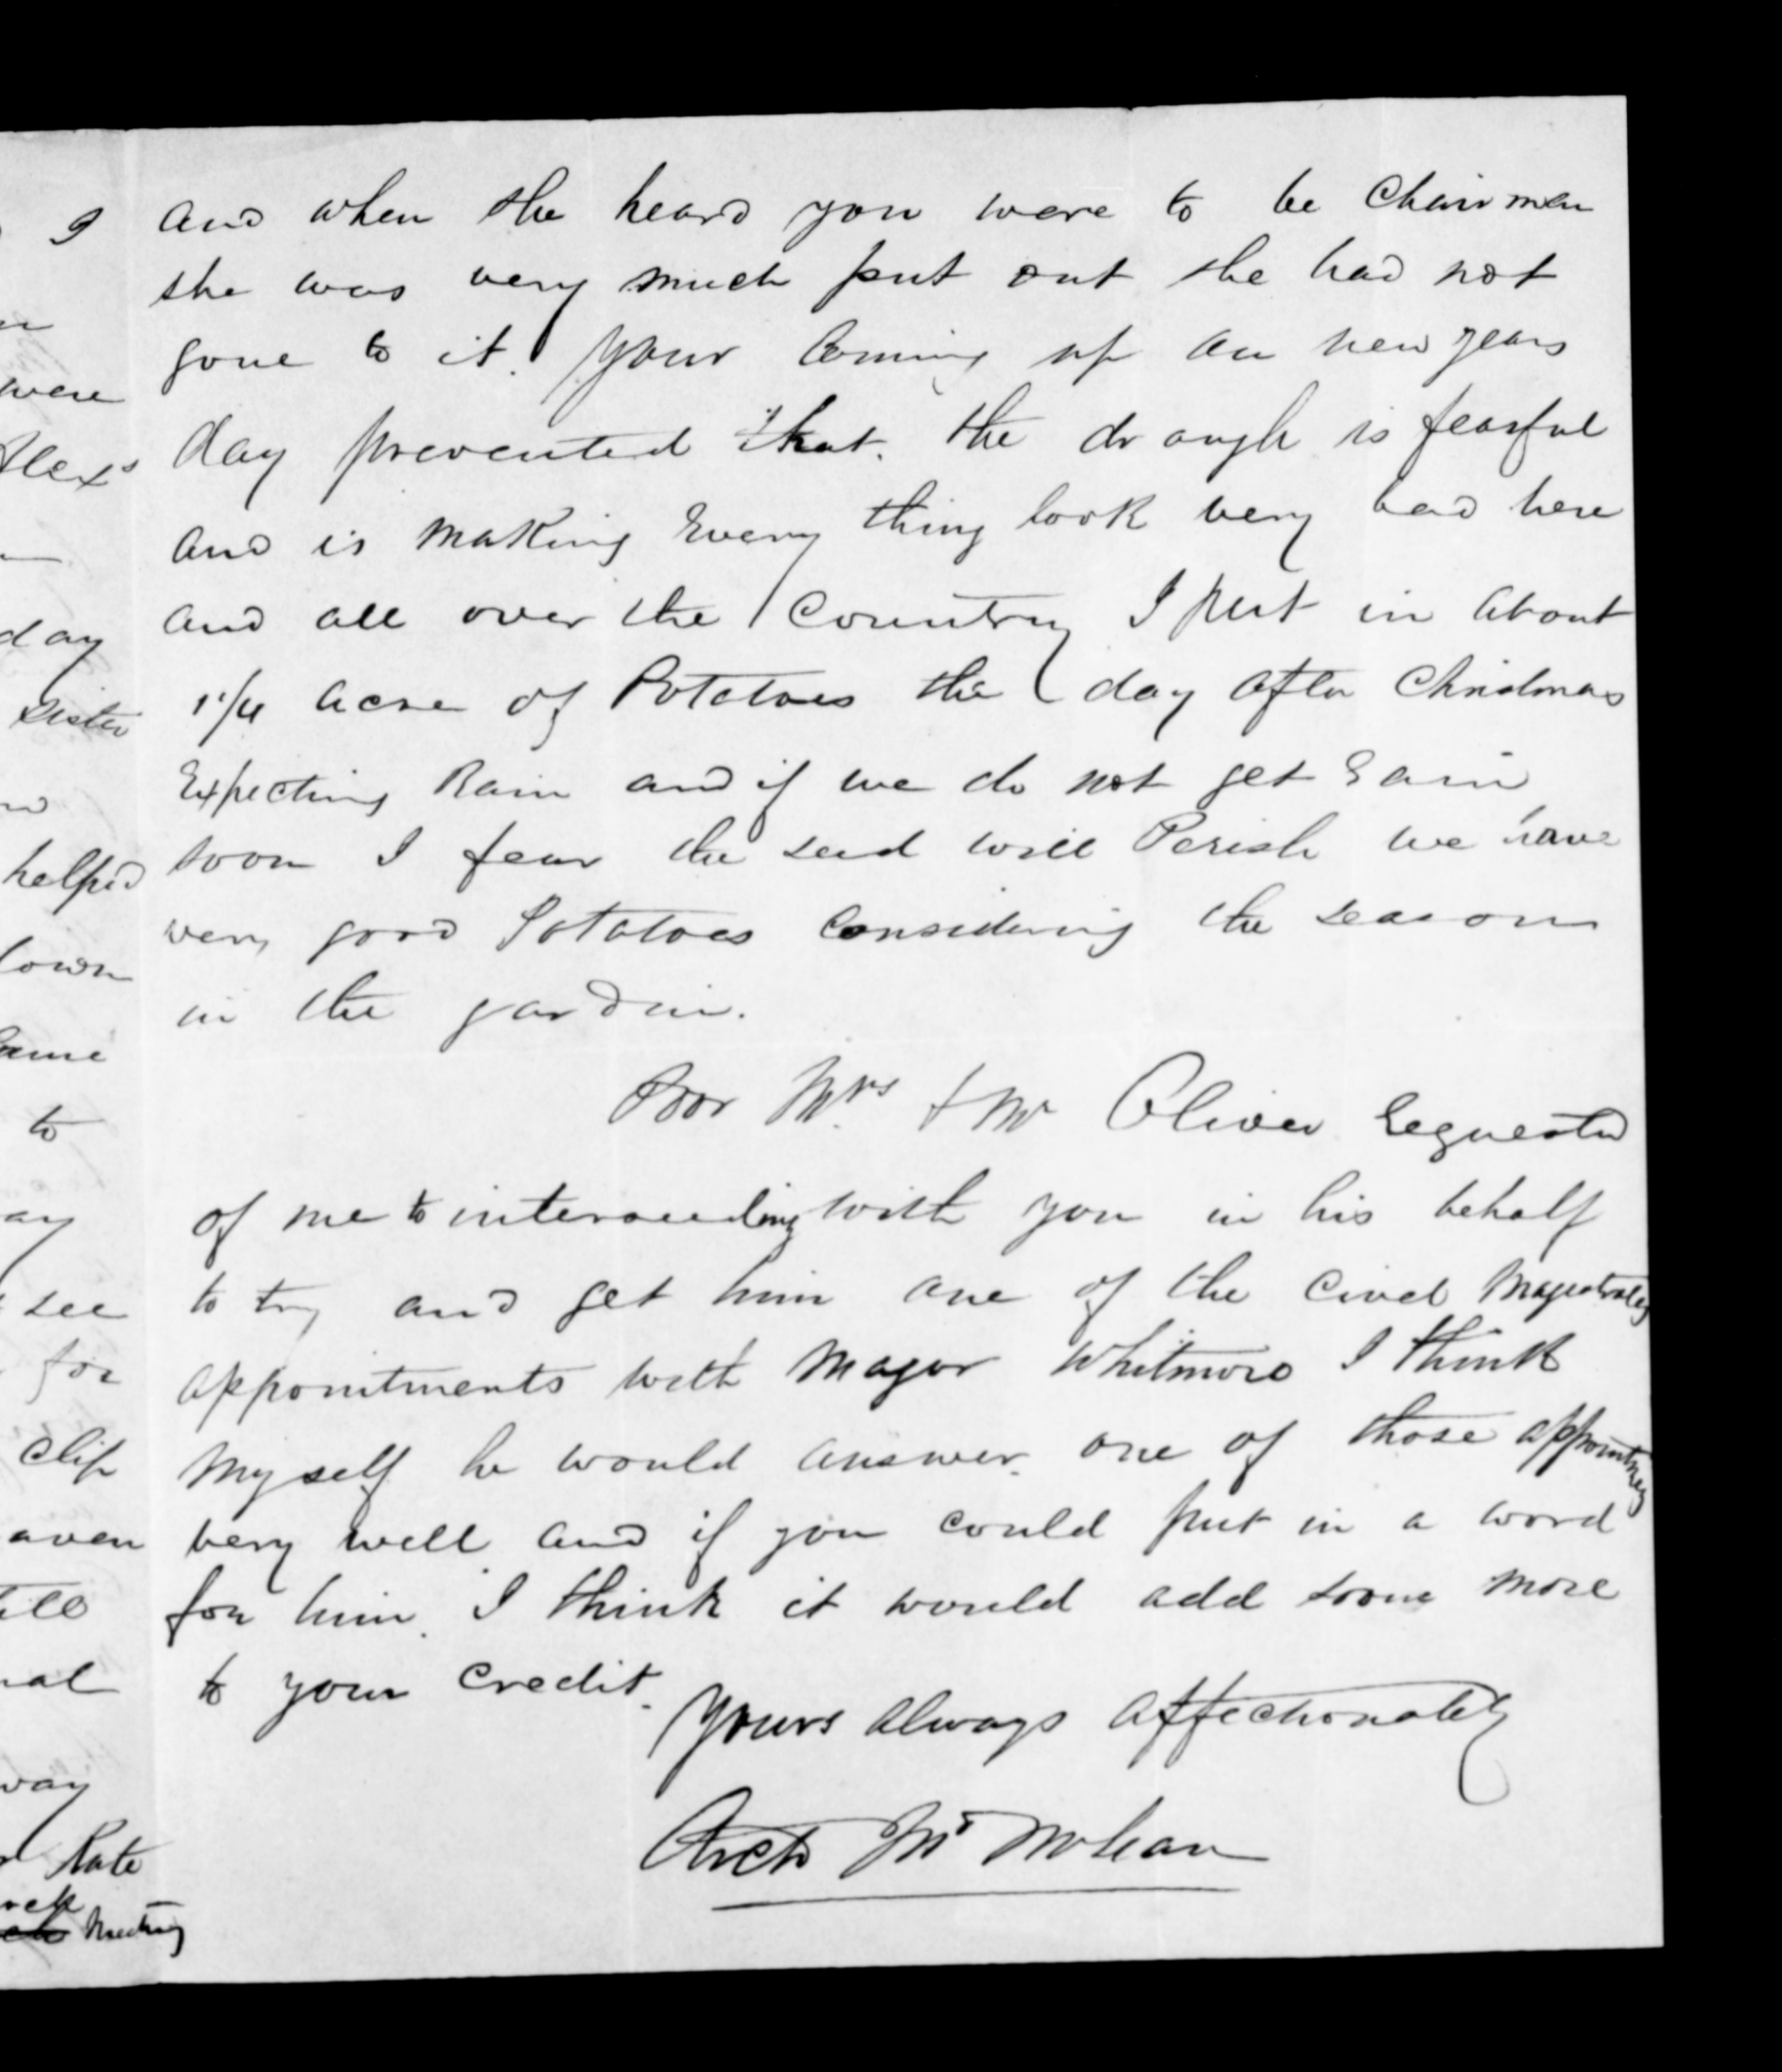 and when she heard you were to be Chairman
she was very much put out she had not
gone to it. Your coming up on new years
day prevented that. the drough is fearful
and is making Every thing look very bad here
and all over the Country I put in about
1 1/4 acre of Potatoes the day after Christmas
Expecting Rain and if we do not get Rain
soon I fear the seed will Perish we have
very good Potatoes Considering the season
in the gardin.
Poor Mrs & Mr Oliver Requested
of me to interceeding with you in his behalf
to try and get him one of the Civel Magestrates
appointments with Major Whitmore I think
myself he would answer one of those appointments
very well and if you could put in a word
for him. I think it would add some more
to your Credit.
Yours always affectionately
Archd McLean
I
were
Alexr
day
sister
helped
down
came
to
see
for
clip
way
Kate
Meeting